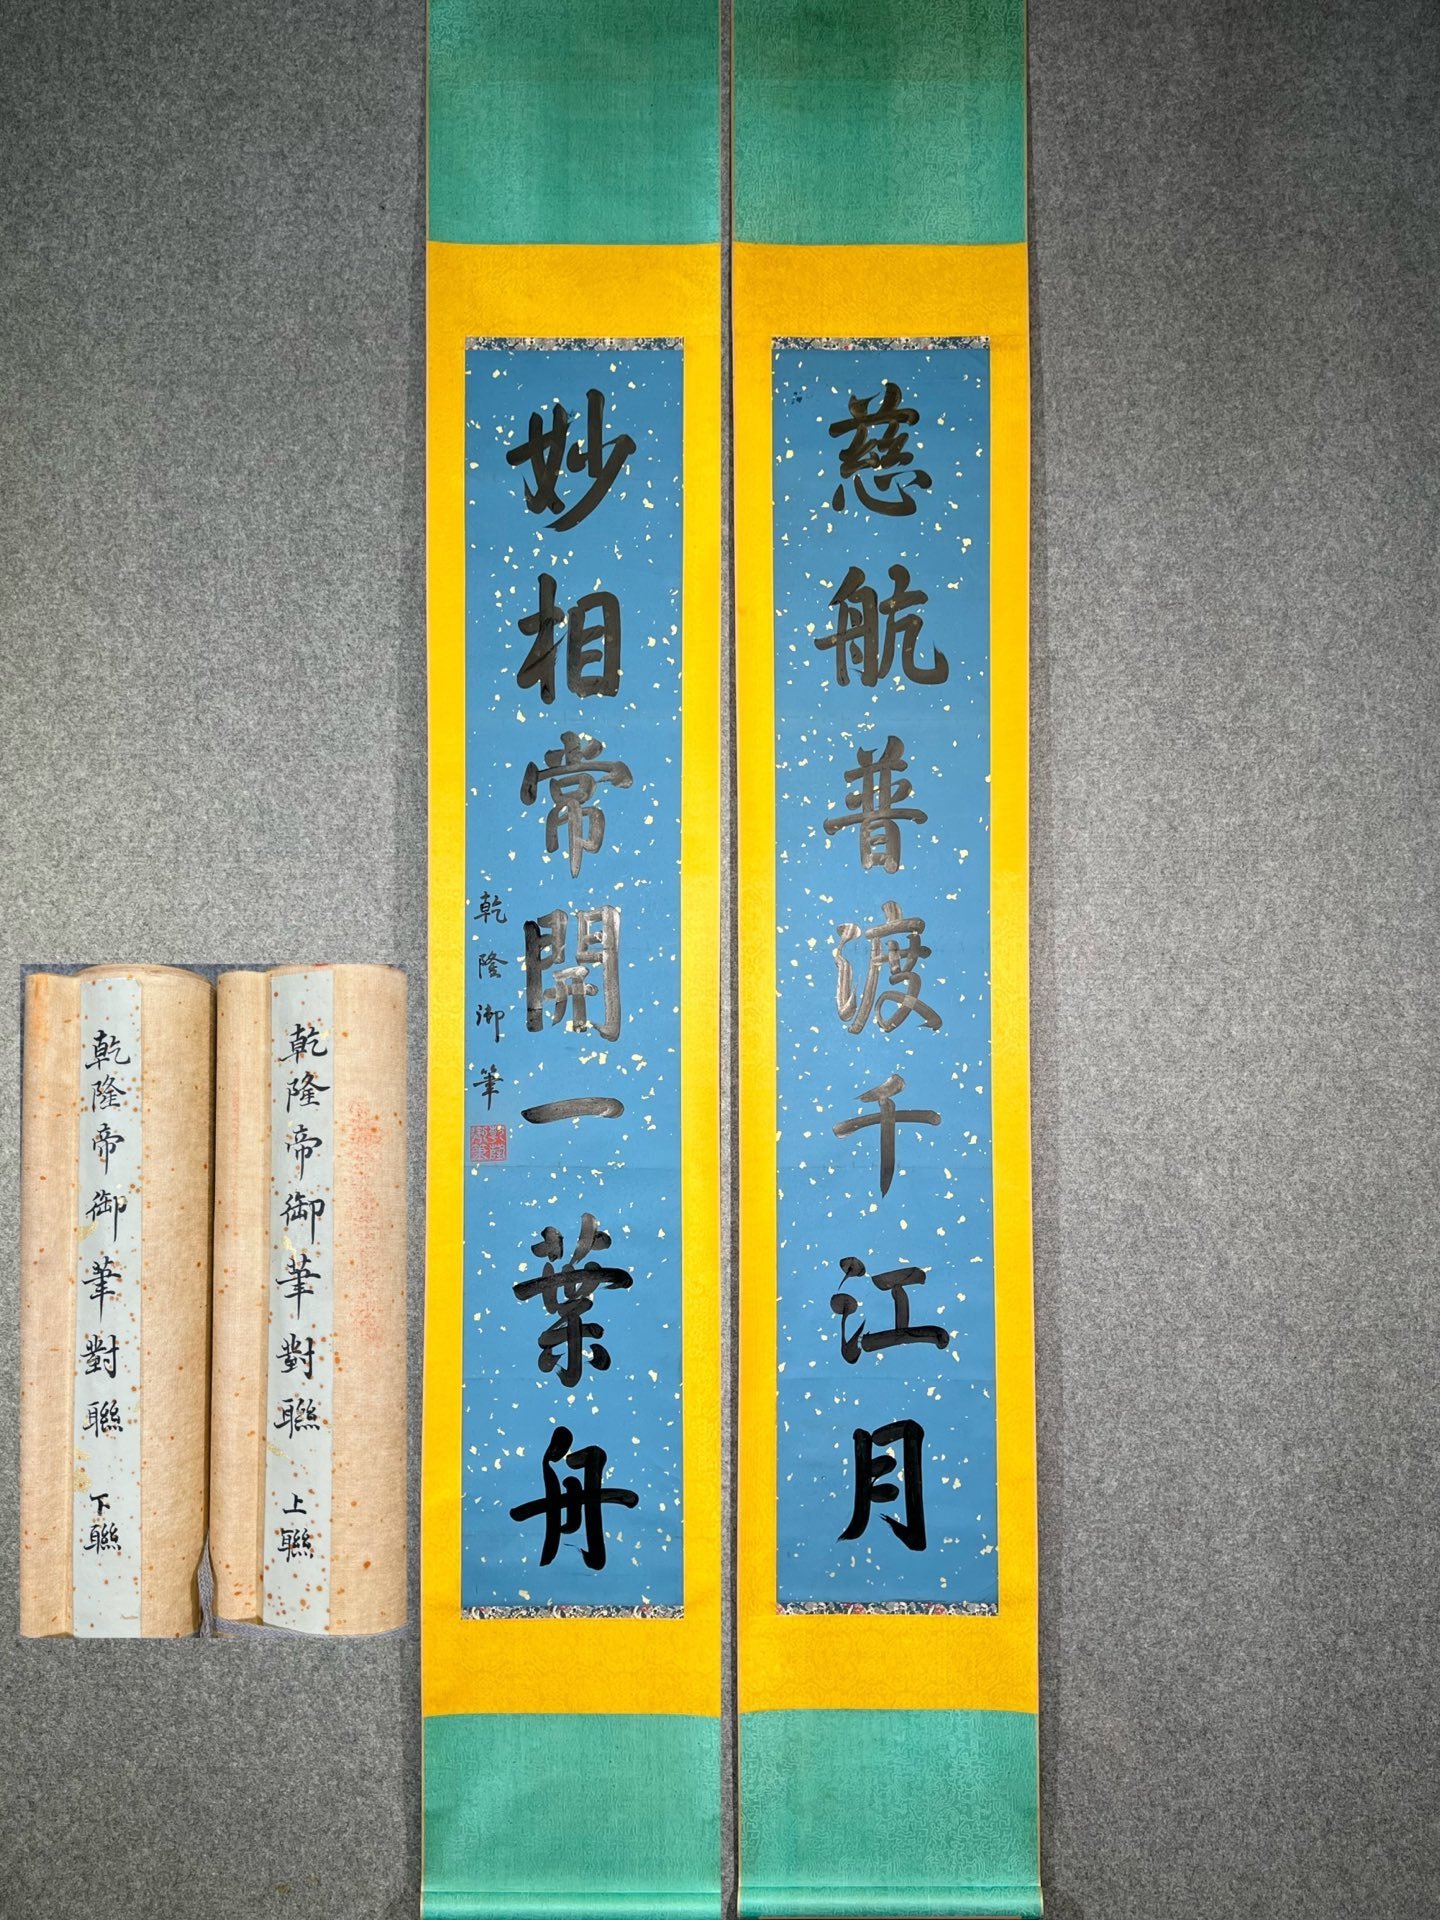 慈航普渡千江月
妙相常開一葉舟
乾隆御筆
乾隆御筆
乾隆帝御筆對聯 上聯
乾隆帝御筆對聯 下聯